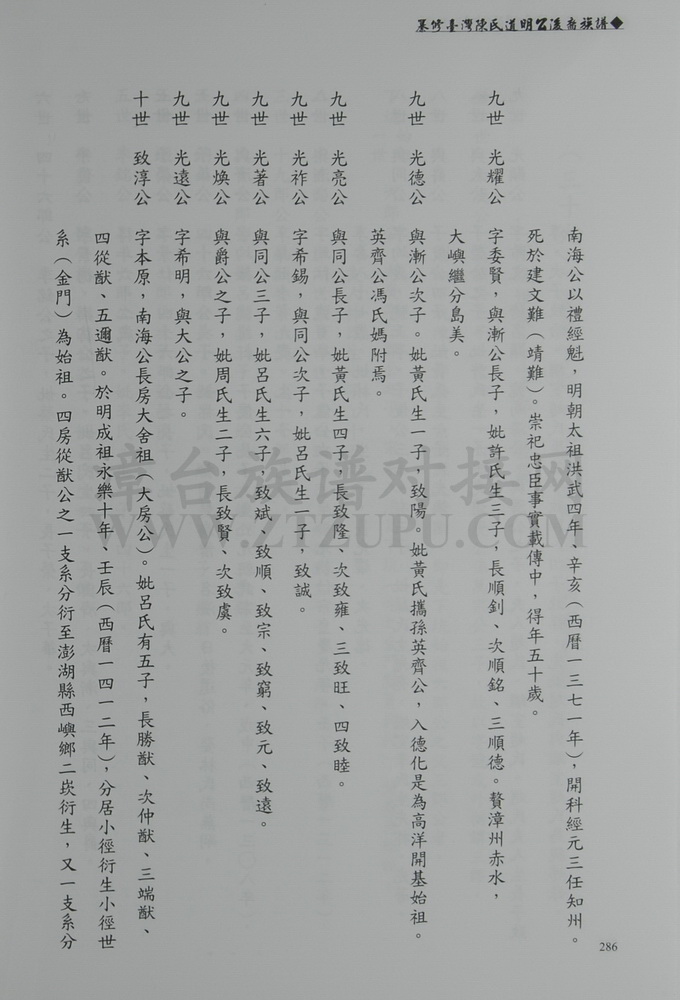 纂修臺灣陳氏道明公後裔族譜◆
南海公以禮經魁，明朝太祖洪武四年、辛亥（西曆一三七一年），開科經元三任知州。
死於建文難（靖難）。崇祀忠臣事實載傳中，得年五十歲。
九世　光耀公　字委賢，與漸公長子，妣許氏生三子，長順釗、次順銘、三順德。贅漳州赤水，
大嶼繼分島美。
九世　光德公　與漸公次子。妣黃氏生一子，致陽。妣黃氏攜孫英齊公，入德化是為高洋開基始祖。
英齊公馮氏媽附焉。
九世　光亮公　與同公長子，妣黃氏生四子，長致隆、次致雍、三致旺、四致睦。
九世　光祚公　字希錫，與同公次子，妣呂氏生一子，致誠。
九世　光著公　與同公三子，妣呂氏生六子，致斌、致順、致宗、致窮、致元、致遠。
九世　光煥公　與爵公之子，妣周氏生二子，長致賢、次致虞。
九世　光遠公　字希明，與大公之子。
十世　致淳公　字本原，南海公長房大舍祖（大房公）。妣呂氏有五子，長勝猷、次仲猷、三端猷、
四從猷、五邇猷。於明成祖永樂十年、壬辰（西曆一四一二年），分居小徑衍生小徑世
系（金門）為始祖。四房從猷公之一支系分衍至澎湖縣西嶼鄉二崁衍生，又一支系分
286
章台族谱对接网
WWW.ZTZUPU.COM